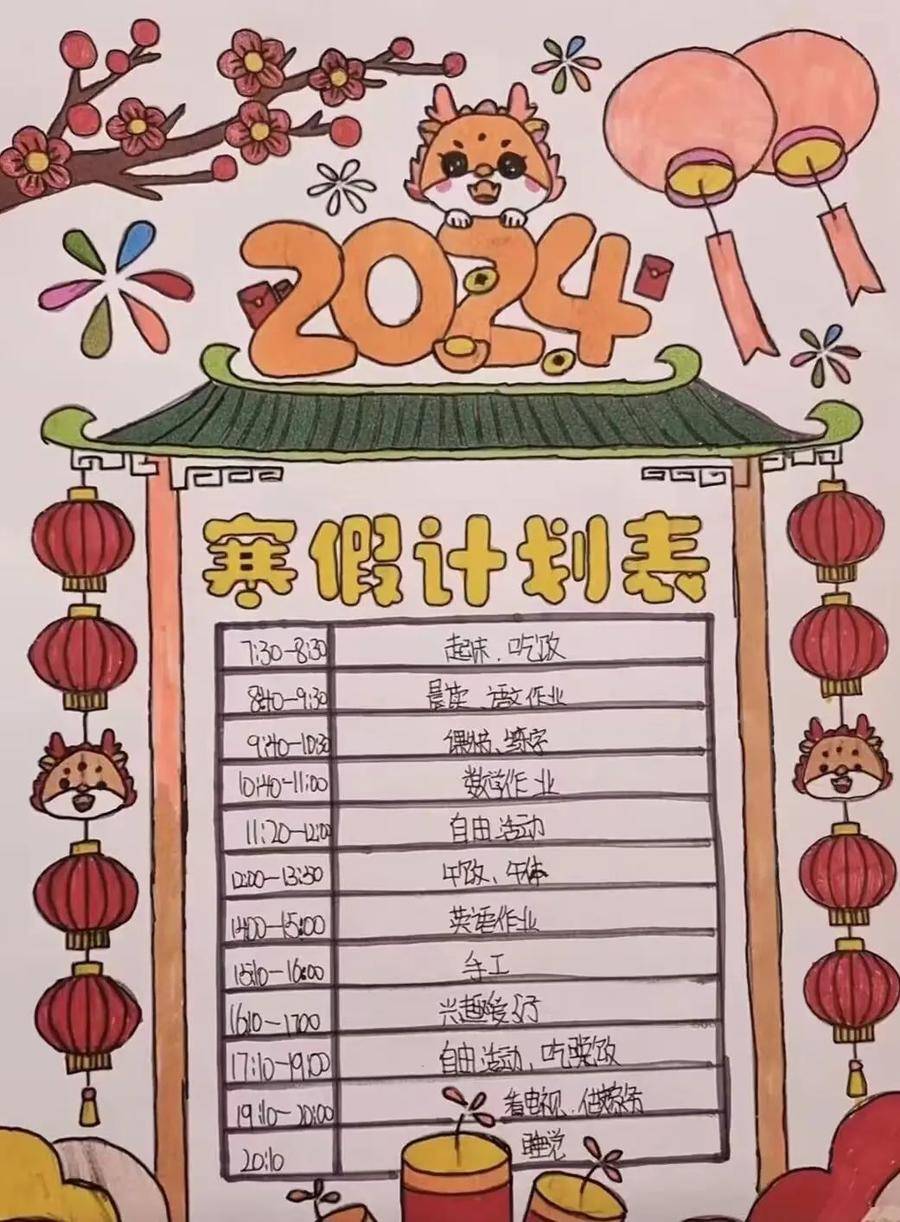 2024
寒假计划表
7:30-8:30 起床、吃饭
8:40-9:30 晨读、语文作业
9:40-10:30 课外书、练字
10:40-11:00 数学作业
11:20-12:00 自由活动
12:00-13:50 午饭、午休
14:00-15:00 英语作业
15:10-16:00 手工
16:10-17:00 兴趣爱好
17:10-19:00 自由活动、吃晚饭
19:10-20:00 看电视、做家务
20:10 睡觉